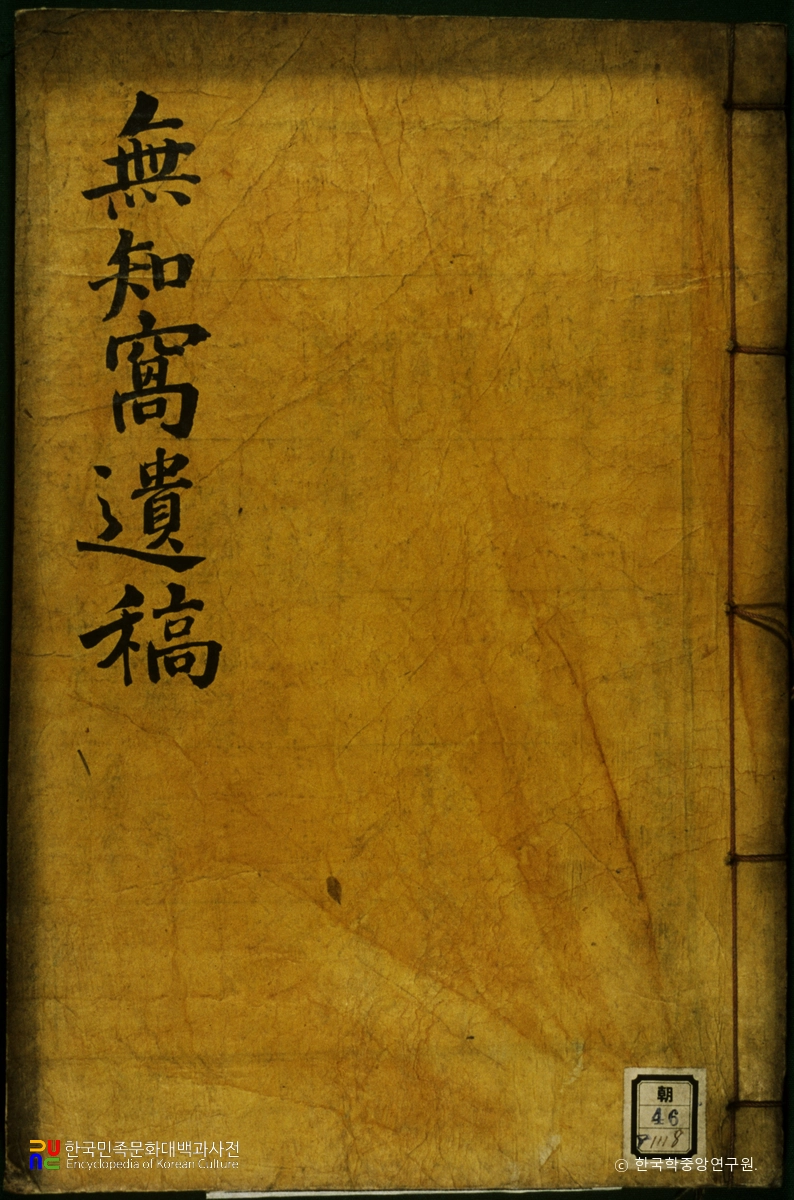 無知窩遺稿
朝
46
한국민족문화대백과사전
Encyclopedia of Korean Culture
© 한국학중앙연구원.